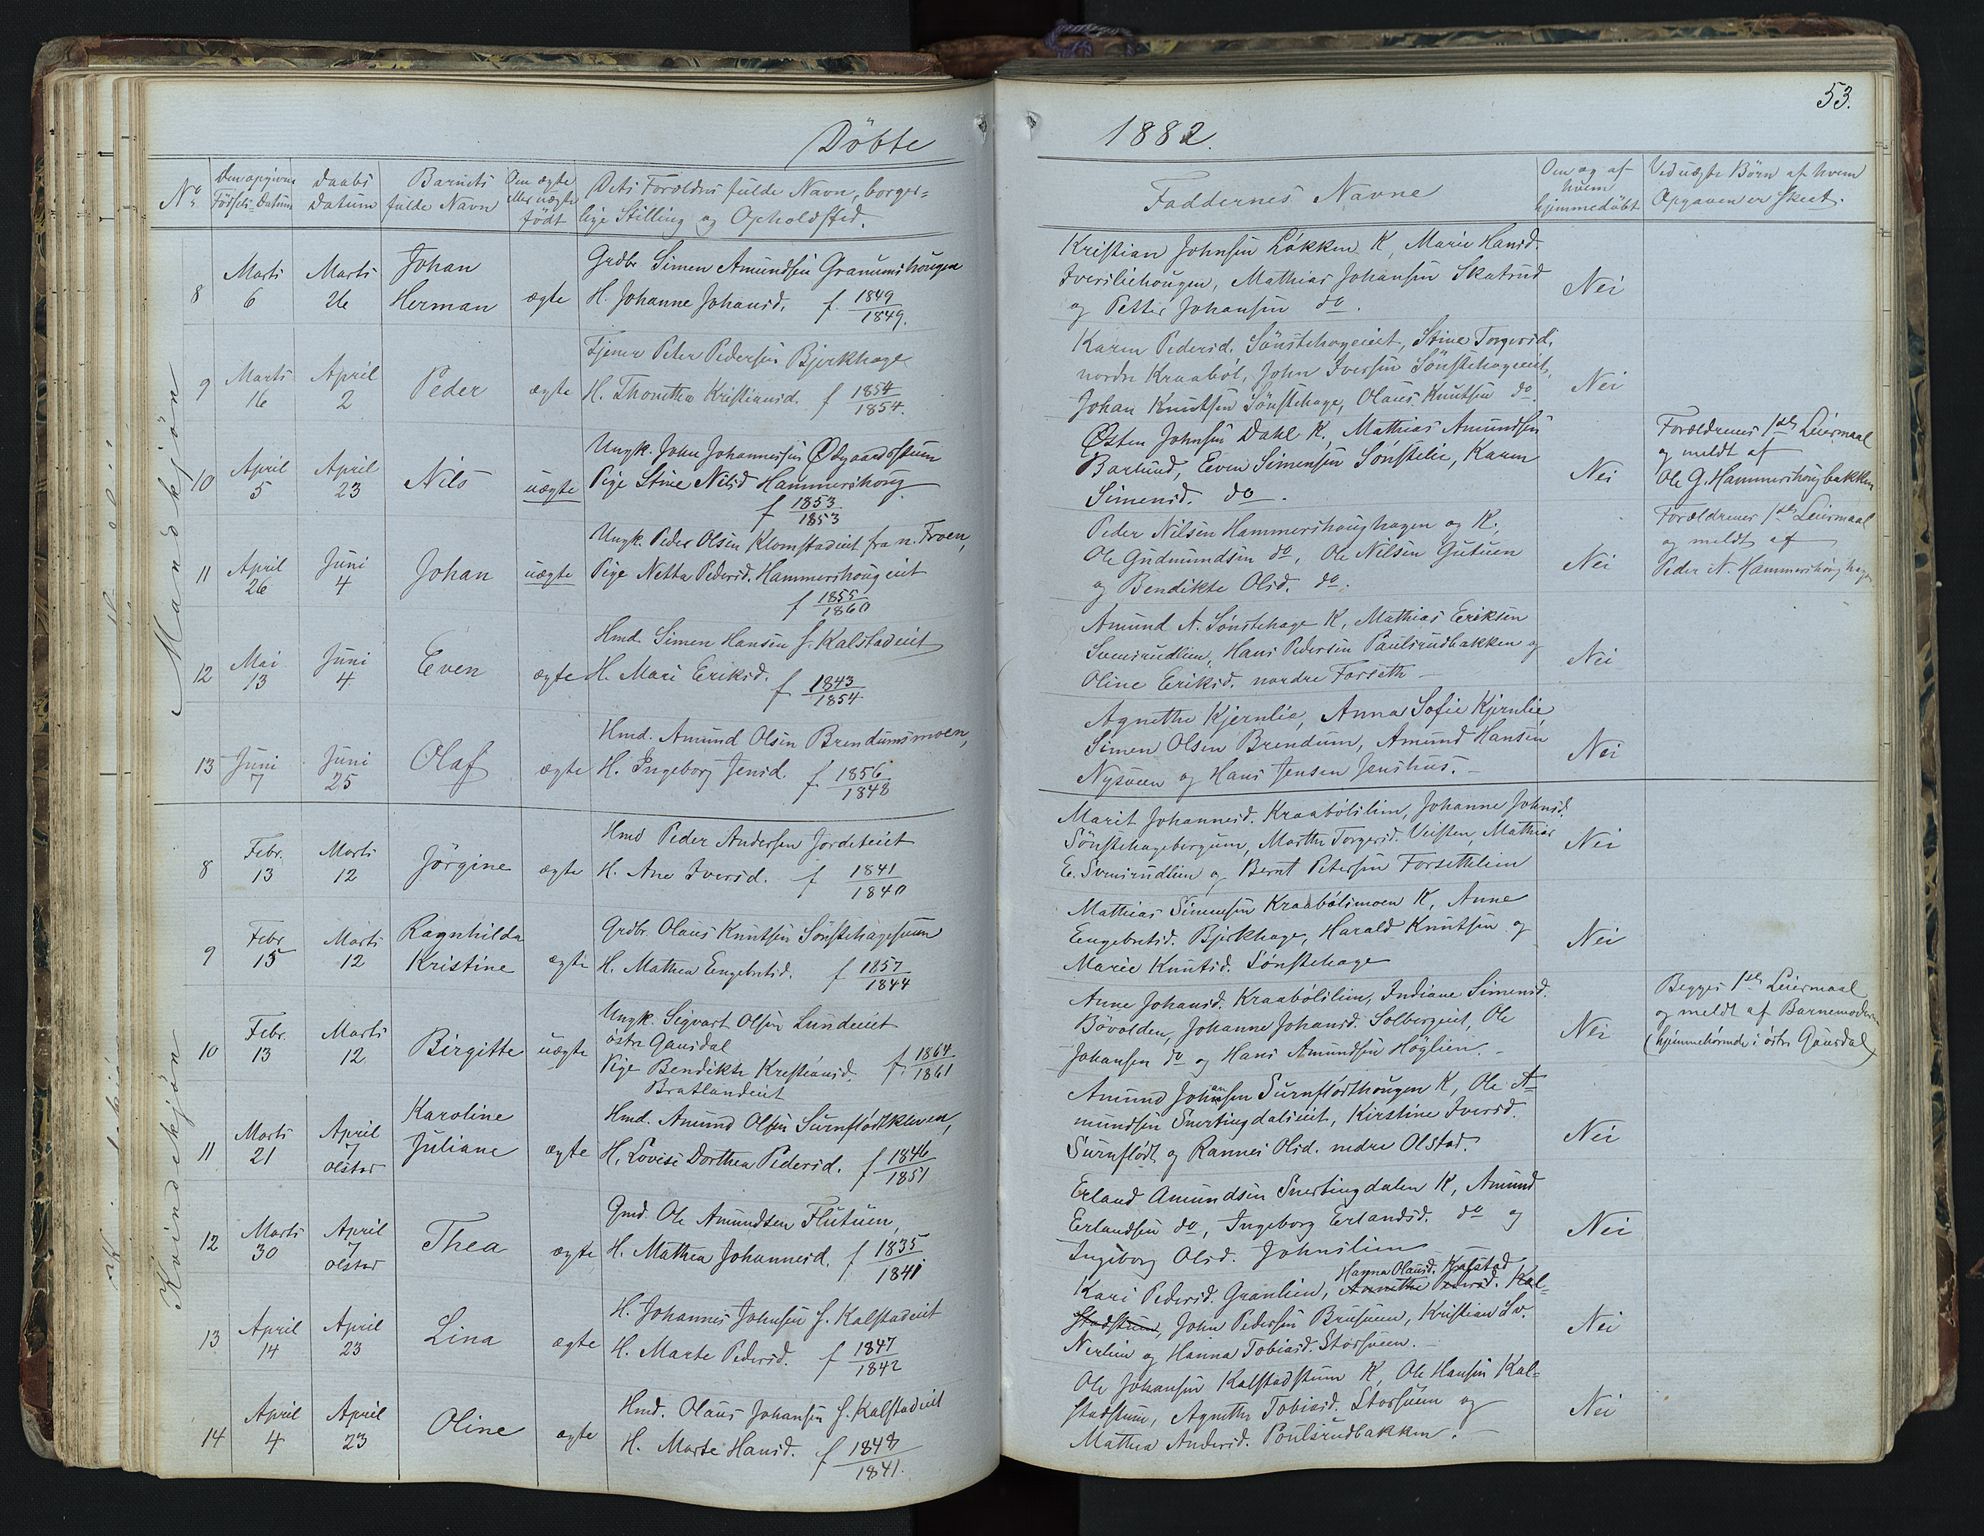 53.
Döbte 1882.
No
Den opgivne Födsels-Datum
Daabs Datum
Barnets fulde Navn
Om ægte eller uægte födt
Dets Forældres fulde Navn, borger-
lige Stilling og Opholdssted.
Faddernes Navne
Om og af hvem hjemmedöbt
Ved uægte Börn af hvem
Opgaven er skeet.
Mandkjön
8 Marts 6 Marts 26 Johan Herman ægte
Grdbr Simen Amundsen Granumshougen
H. Johanne Johansd. f. 1849/1849.
Kristian Johnsen Løkken K, Marie Hansd.
Iversliehougen, Mathias Johansen Skatrud
og Petter Johansen do.
Nei
9 Marts 16 April 2 Peder ægte
Tjener Peter Pedersen Bjerkhage
H. Thonetha Kristiansd. f 1854/1854.
Karen Pedersd. Sönstehageeiet, Stine Torgersd.
nordre Kraaböl, John Iversen Sönstehageeiet,
Johan Knutsen Sönstehage, Olaus Knutsen do.
Nei
10 April 5 April 23 Nils uægte
Ungk. John Johannessen Ødegaardsstuen
Pige Stine Nilsd Hammershoug
f 1853/1853
Østen Johnsen Dahl K, Mathias Amundsen
Barlund, Even Simensen Sønstelie, Karen
Simensd. do.
Nei
Forældrenes 1ste Leiermaal
og meldt af
Ole G. Hammershougbakken
11 April 26 Juni 4 Johan uægte
Ungk. Peder Olsen Klomstadeiet fra n. Froen,
Pige Netta Pedersd. Hammershougeiet
f 1855/1860
Peder Nilsen Hammershoughagen og K.
Ole Gudmundsen do, Ole Nilsen Gutuen
og Bendikte Olsd. do.
Nei
Forældrenes 1ste Leiermaal
og meldt af
Peder N. Hammershoughagen
12 Mai 13 Juni 4 Even ægte
Hmd. Simen Hansen s. Kalstadeiet
H. Mari Eriksd. f. 1843/1854.
Amund A. Sønstehage K, Mathias Eriksen
Svensrudlien, Hans Pedersen Paulsrudbakken og
Oline Eriksd. nordre Forseth
Nei
13 Juni 7 Juni 25 Olaf ægte
Hmd. Amund Olsen Brendumsmoen,
H. Ingeborg Jensd. f. 1856/1848
Agnethe Kjernlie, Anna Sofie Kjernlie
Simen Olsen Brendum, Amund Hansen
Nysveen og Hans Jensen Jenshus.
Nei
Kvindekjön
8 Febr. 13 Marts 12 Jörgine ægte
Hmd Peder Andersen Jordeteiet
H. Ane Iversd. f 1841/1840
Marit Johannesd. Kraabölslien, Johanne Johnsd.
Sönstehagebergum, Marthe Torgersd. Veisten, Mathias
E. Svensrudlien og Bernt Petersen Forsethlien
Nei
9 Febr 15 Marts 12 Ragnhilda Kristine ægte
Grdbr. Olaus Knutsen Sönstehagesveen
H. Mathea Engebretsd. f 1857/1844
Mathias Simensen Kraabölsmoen K, Anne
Engebretsd. Bjerkhage, Harald Knutsen og
Marie Knutsd. Sønstehage
Nei
10 Febr. 13 Marts 12 Birgitte uægte
Ungk. Sigvart Olsen Lundeeiet
östre Gausdal
Pige Bendikte Kristiansd. f. 1864/1861
Bratlandeiet
Anne Johansd. Kraabölslien, Indiane Simensd.
Bövolden, Johanne Johansd. Solbergeiet, Ole
Johansen do og Hans Amundsen Höglien.
Nei
Begges 1ste Leiermaal
og meldt af Barnemoderen
(hjemmehörende i östre Gausdal)
11 Marts 21 April 7 Olstad Karoline Juliane ægte
Hmd. Amund Olsen Surnflödtkleven,
H. Lovise Dorthea Pedersd. f 1846/1851
Amund Johansen Surnflödthougen K, Ole A-
mundsen Svertingdalseiet, Kirstine Iversd.
Surnflödt og Rannei Olsd. nedre Olstad.
Nei
12 Marts 30 April 7 Olstad Thea ægte
Gmd. Ole Amundsen Flutuen,
H. Mathea Johannesd. f 1835/1841
Erland Amundsen Svertingdalen K, Amund
Erlandsen do, Ingeborg Erlandsd. do og
Ingeborg Olsd. Johnslien
Nei
13 April 14 April 23 Lina ægte
H. Johannes Johnsen s. Kalstadeiet
H. Marte Pedersd. f 1847/1842
Hanna Olausd. Kalstad
Kari Pedersd. Granlien, Agnethe Pedersd. Kal-
stadstuen, John Pedersen Brusveen, Kristian Sv.
Nerlien og Hanna Tobiasd. Storsveen.
Nei
14 April 4 April 23 Oline ægte
Hmd. Olaus Johansen s. Kalstadeiet
H. Marte Hansd. f 1848/1841.
Ole Johansen Kalstadstuen K, Ole Hansen Kal-
stadstuen, Agnethe Tobiasd. Storsveen og
Mathea Andersd. Poulsrudbakken.
Nei